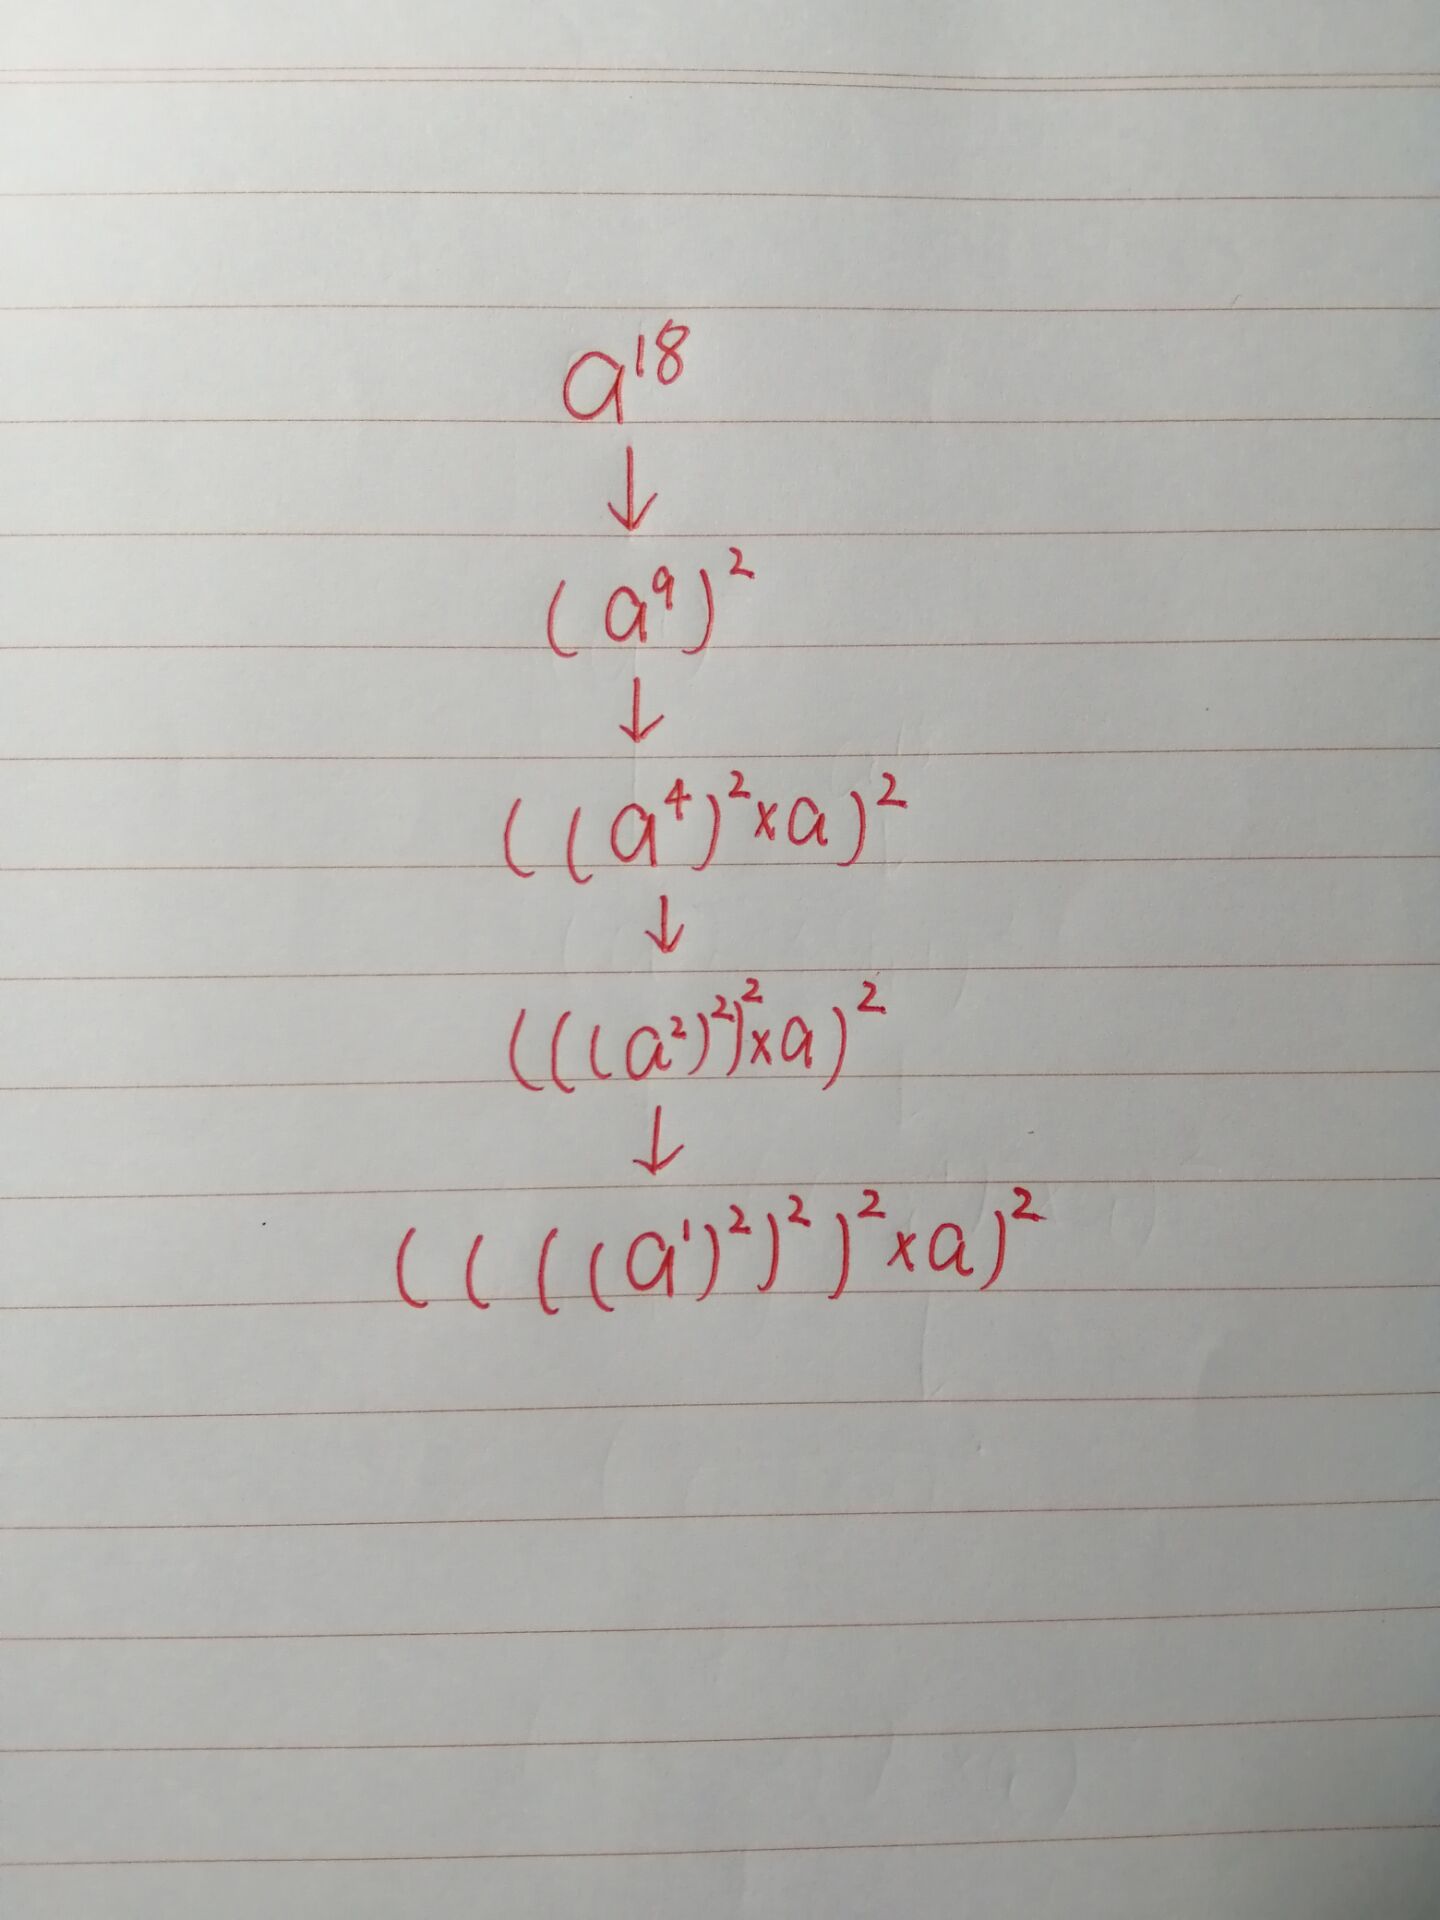 a¹⁸
↓
(a⁹)²
↓
((a⁴)²×a)²
↓
(((a²)²)²×a)²
↓
((((a¹)²)²)²×a)²